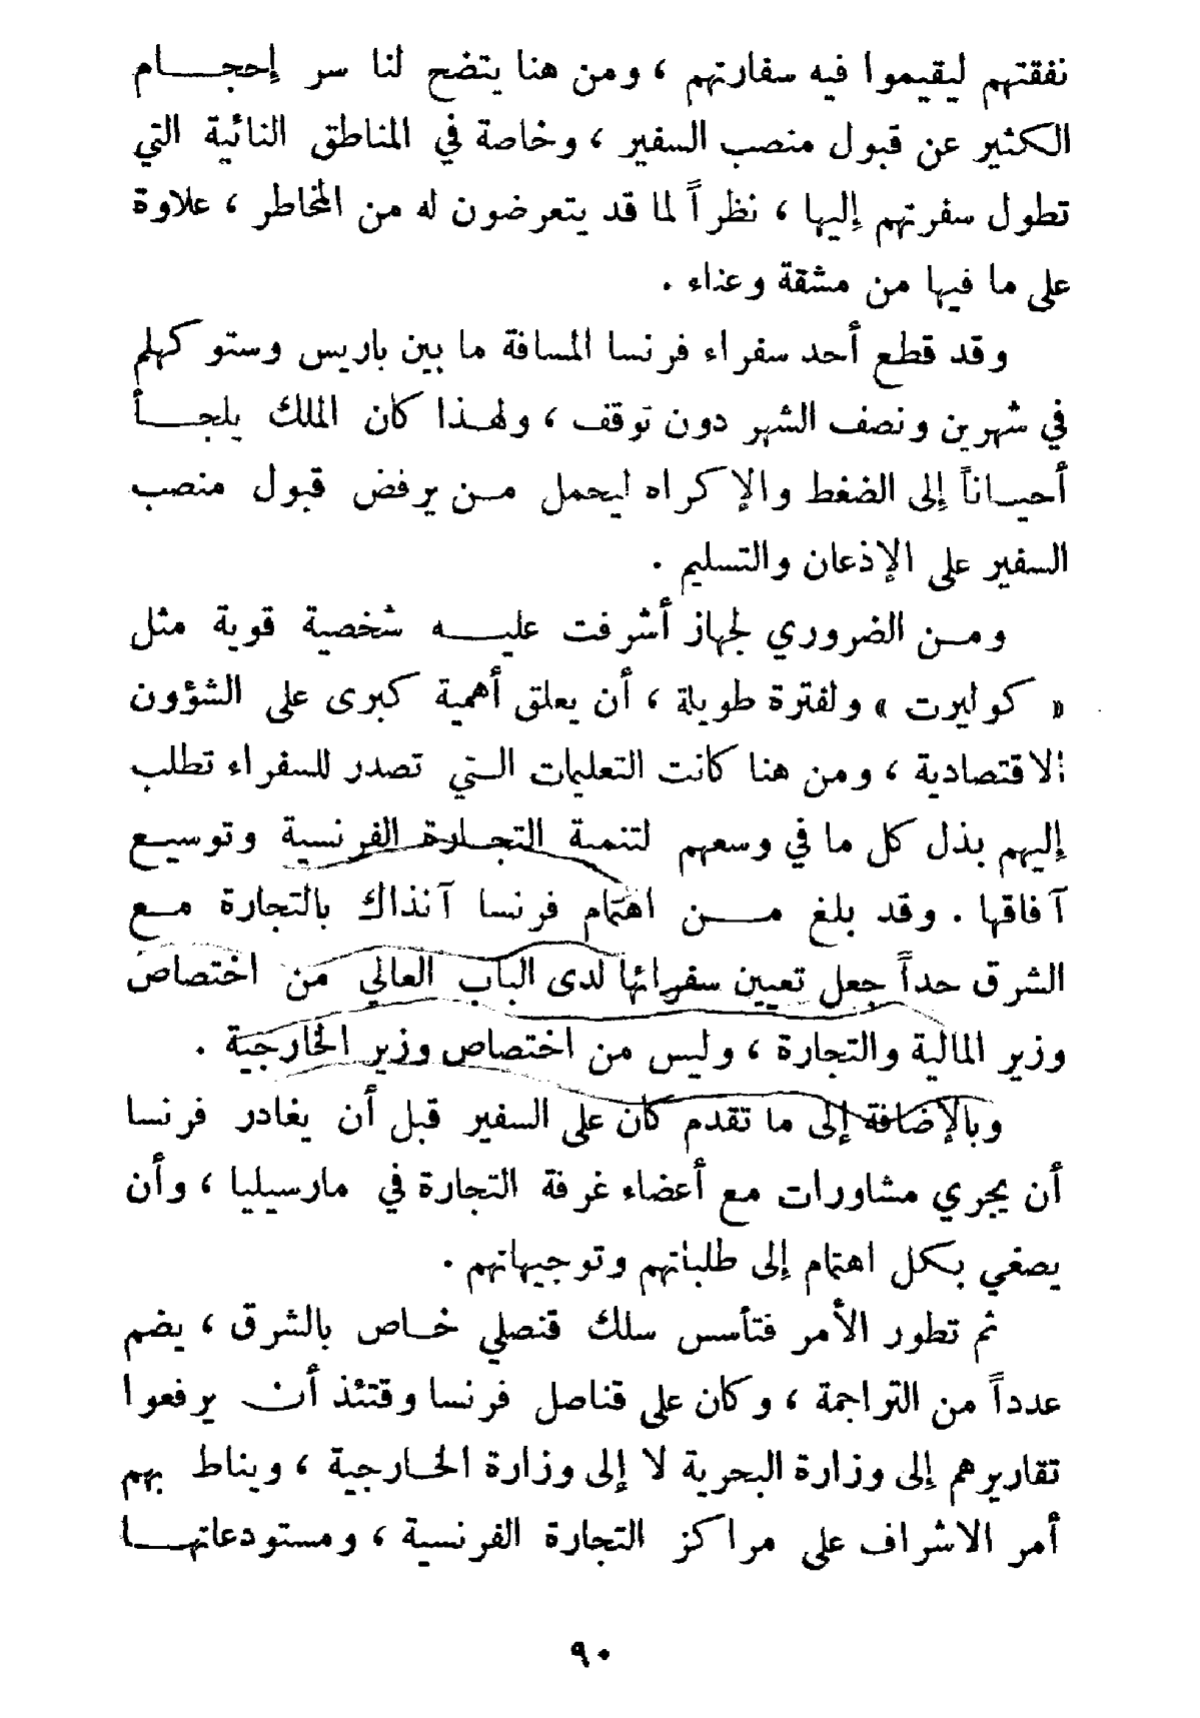 نفقتهم ليقيموا فيه سفارتهم ، ومن هنا يتضح لنا سر إحجام
الكثير عن قبول منصب السفير ، وخاصة في المناطق النائية التي
تطول سفرتهم إليها ، نظراً لما قد يتعرضون له من المخاطر ، علاوة
على ما فيها من مشقة وعناء .
وقد قطع أحد سفراء فرنسا المسافة ما بين باريس وستوكهلم
في شهرين ونصف الشهر دون توقف ، ولهذا كان الملك يلجأ
أحياناً إلى الضغط والإكراه ليحمل من يرفض قبول منصب
السفير على الإذعان والتسليم .
ومن الضروري لجهاز أشرفت عليه شخصية قوية مثل
« كولبرت » ولفترة طويلة ، أن يعلق أهمية كبرى على الشؤون
الاقتصادية ، ومن هنا كانت التعليمات التي تصدر للسفراء تطلب
إليهم بذل كل ما في وسعهم لتنمية التجارة الفرنسية وتوسيع
آفاقها . وقد بلغ من اهتمام فرنسا آنذاك بالتجارة مع
الشرق حداً جعل تعيين سفرائها لدى الباب العالي من اختصاص
وزير المالية والتجارة ، وليس من اختصاص وزير الخارجية .
وبالإضافة إلى ما تقدم كان على السفير قبل أن يغادر فرنسا
أن يجري مشاورات مع أعضاء غرفة التجارة في مارسيليا ، وأن
يصغي بكل اهتمام إلى طلباتهم وتوجيهاتهم .
ثم تطور الأمر فتأسس سلك قنصلي خاص بالشرق ، يضم
عدداً من التراجمة ، وكان على قناصل فرنسا وقتئذ أن يرفعوا
تقاريرهم إلى وزارة البحرية لا إلى وزارة الخارجية ، ويناط بهم
أمر الاشراف على مراكز التجارة الفرنسية ، ومستودعاتها
٩٠